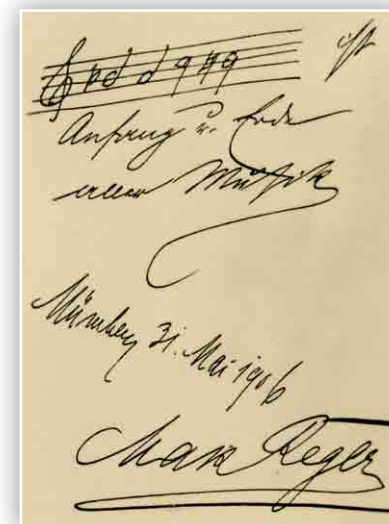 ist
Anfang u. Ende
aller Musik
Nürnberg 31. Mai 1906
Max Reger